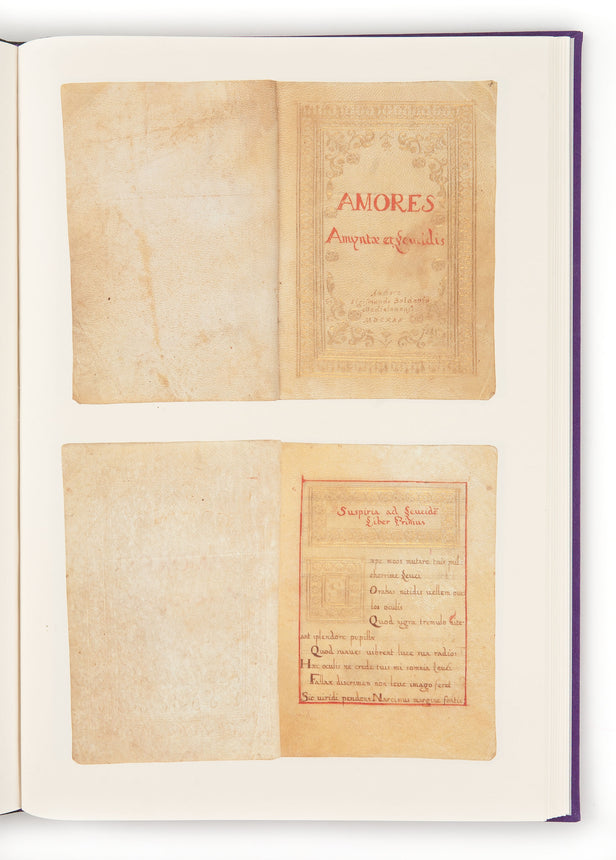 AMORES
Amyntæ et Leucidis
Autore
Sigismundo Boldonio
Mediolanensi
Suspiria ad Leucidē
Liber Primus
S
æpe meos mutare tuis pul
cherrime Leuci
Orabas nitidis uellem ocel
los oculis
Quod nigra tremulo nite
ant splendore pupillæ
Quod uibrent luce sua radios
Hæc oculis ne crede tuis mi somnia Leuci
Fallax discrimen non leue imago ferat
Sic uiridi pendens Narcissus margine fontis